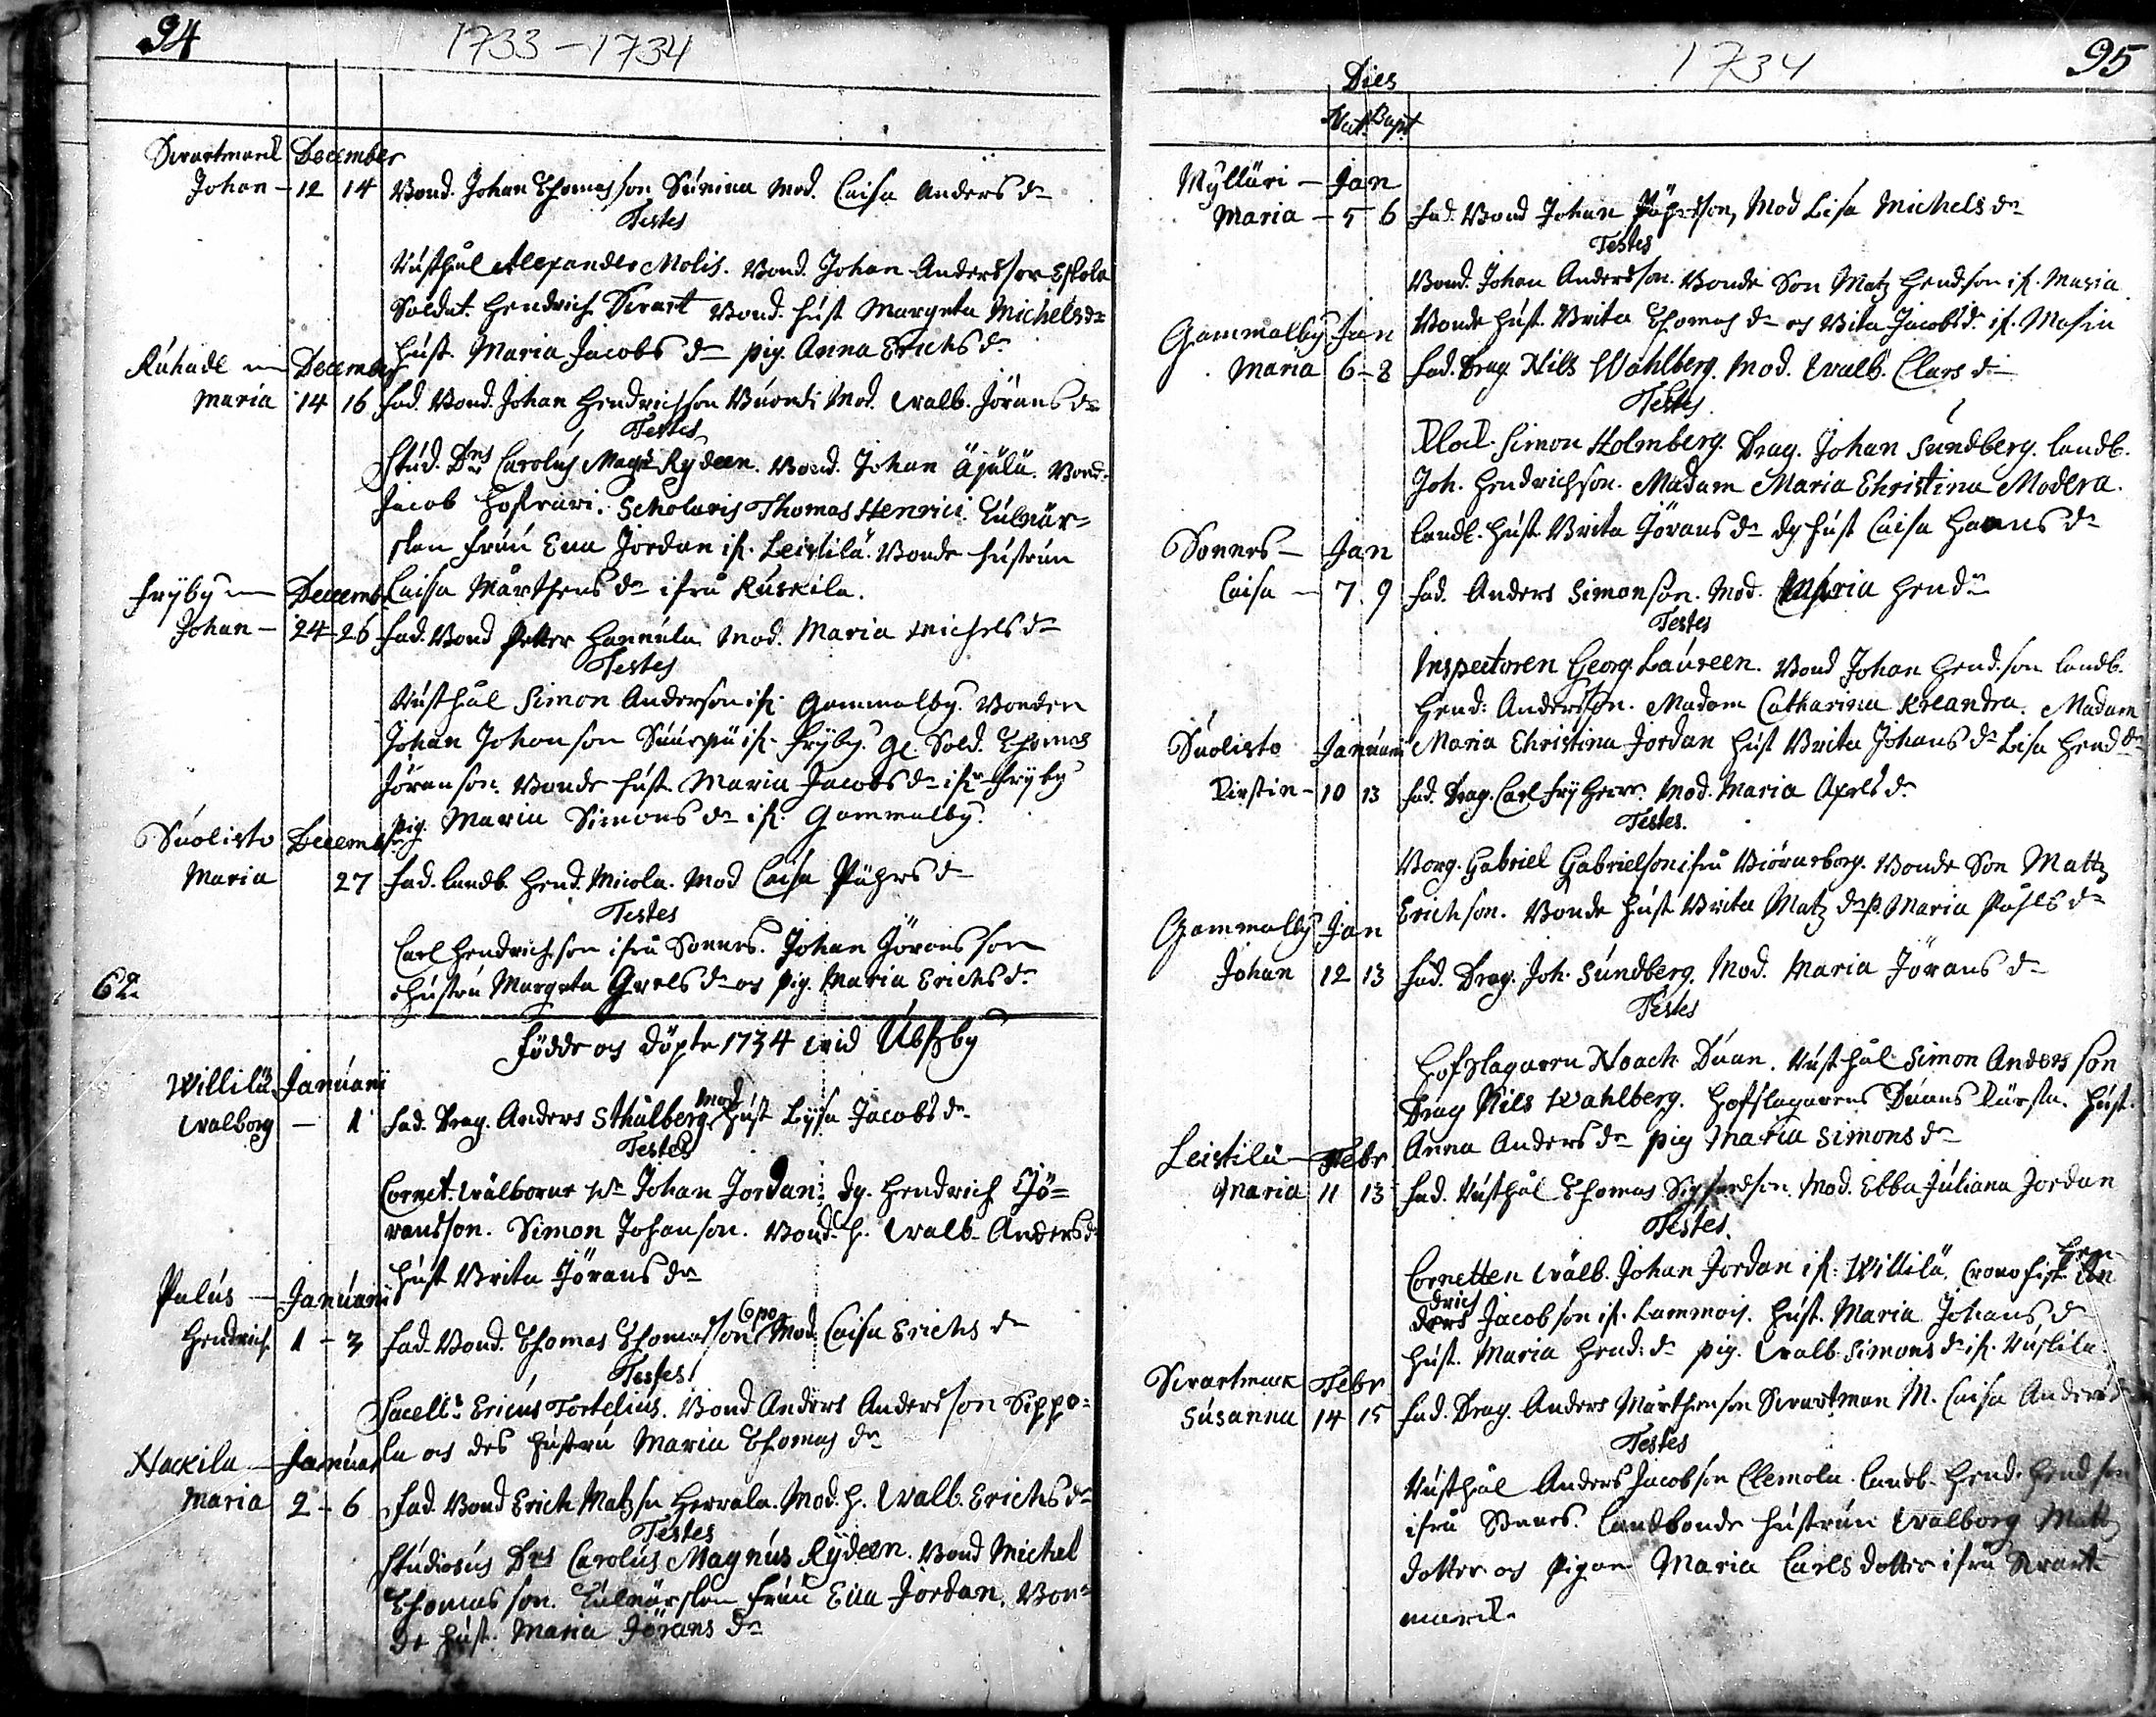 94
1733-1734
Swartmark December
Johan - 12 14 Bond. Johan Thomasson Mod. Caisa Anders dr
Testes
Rusthål Alexander Molis. Bond. Johan Andersson Eskola
Soldat. Hendrich Swart Bond. Hust Margeta Michels dr
Hust. Maria Jacobs dr pig. Anna Erichs dr
December
Maria 14 16 Fad. Bond. Johan Hendrichson Mod. Walb. Jörans dr
Testes
Stud. Dns Carolus Magn Rydeen. Bond. Johan Äijälä. Bond.
Jacob Scholaris Thomas Henrici.
Fruu Eua Jordan ifr. Leistilä. Bonde hustrun
Fryby December Caisa Mårthens dr ifrå Ruskila.
Johan - 24-26 Fad. Bond Petter Hannula Mod. Maria Michels dr
Testes
Rusthål Simon Anderson ifr. Gammalby. Bonden
Johan Johanson ifr. Fryby. Gl. Sold. Thomas
Jöranson. Bonde hust. Maria Jacobs dr ifr Fryby
pig. Maria Simons dr ifr. Gammalby.
Suolisto December
Maria 27 Fad. Landb. Hend. Micola. Mod Caisa Påhrs dr
Testes
Carl Hendrichson ifrå Sonnes. Johan Jöransson
Hustru Margeta Grels dr och pig. Maria Erichs dr
62
Födde och döpte 1734 wid Ulfsby
Willilä Januarii
Walborg - 1 Fad. Drag. Anders Sthålberg Mod Hust Lysa Jacobs dr
Testes
Cornet. Wälborne Hr Johan Jordan. Dg. Hendrich Jö=
ransson. Simon Johanson. Bond. h. Walb. Anders dr
Hust Brita Jörans dr
Palus - Januarii
Hendrich 1 - 3 Fad. Bond. Thomas Thomasson Mod. Caisa Erichs dr
Testes
Sacells Ericus Tortelius. Bond Anders Anderson Sippo=
la och des hustru Maria Thomas dr
Hackila - Januar
Maria 2 - 6 Fad. Bond Erich Matzsn Herrala. Mod. h. Walb. Erichs dr
Testes
Studiosus Dns Carolus Magnus Rydeen. Bond Michel
Thomasson. Fruu Eua Jordan. Bon=
de hust. Maria Jörans dr
1734
95
Dies
Nat. Bapt
Mylläri - Jan
Maria - 5 6 Fad. Bond Johan Mod Lisa Michels dr
Testes
Bond. Johan Andersson. Bonde Son Matz Hendson ifr. Masia
Bonde hust. Brita Thomas dr och Brita Jacobs dr ifr. Masia
Gammalby Jan
Maria 6-8 Fad. Drag Nils Wahlberg. Mod. Walb. Clars dr
Testes
Klock. Simon Holmberg. Drag. Johan Sundberg. Landb.
Joh. Hendrichson. Madam Maria Christina Modera.
Landb. hust. Brita Jörans dr Dg hust Caisa Hanns dr
Sonnes - Jan
Caisa - 7. 9 Fad. Anders Simonson. Mod. Maria Hend dr
Testes
Inspectoren Georg Laureen. Bond Johan Hendson Landb.
Hend: Andersson. Madam Catharina Kreandra. Madam
Maria Christina Jordan Hust Brita Johans dr Lisa Hend dr
Suolisto Januari
Kirstin - 10 13 Fad. Drag. Carl Fryherr. Mod. Maria Axels dr
Testes.
Borg. Gabriel Gabrielson ifrå Biörneborg. Bonde Son Mattz
Erichson. Bonde hust Brita Matz dr p. Maria Påhls dr
Gammalby Jan
Johan 12 13 Fad. Drag. Joh. Sundberg. Mod. Maria Jörans dr
Testes
Hofslagaren Noach Duan. Rusthål Simon Andersson
Drag Nils Wahlberg. Hofslagarens Duans Kärsta. Hust.
Anna Anders dr pig Maria Simons dr
Leistilä Febr
Maria 11 13 Fad. Rusthål Thomas Sigfredson. Mod. Ebba Juliana Jordan
Testes.
Cornetten Wälb. Johan Jordan ifr: Willilä. Hen
drich Jacobson ifr. Lammois. Hust. Maria Johans dr
Hust. Maria Hend: dr pig. Walb. Simons dr ifr.
Swartmark Febr
Susanna 14 15 Fad. Drag. Anders Mårthenson Swartman M. Caisa Anders dr
Testes
Rusthål Anders Jacobson Clemola. Landb. Hend. Hendson
ifrå Sonnes. Landbonde hustrun Walborg Matts
dotter och pigan Maria Carls dotter ifrå Swart
mark.